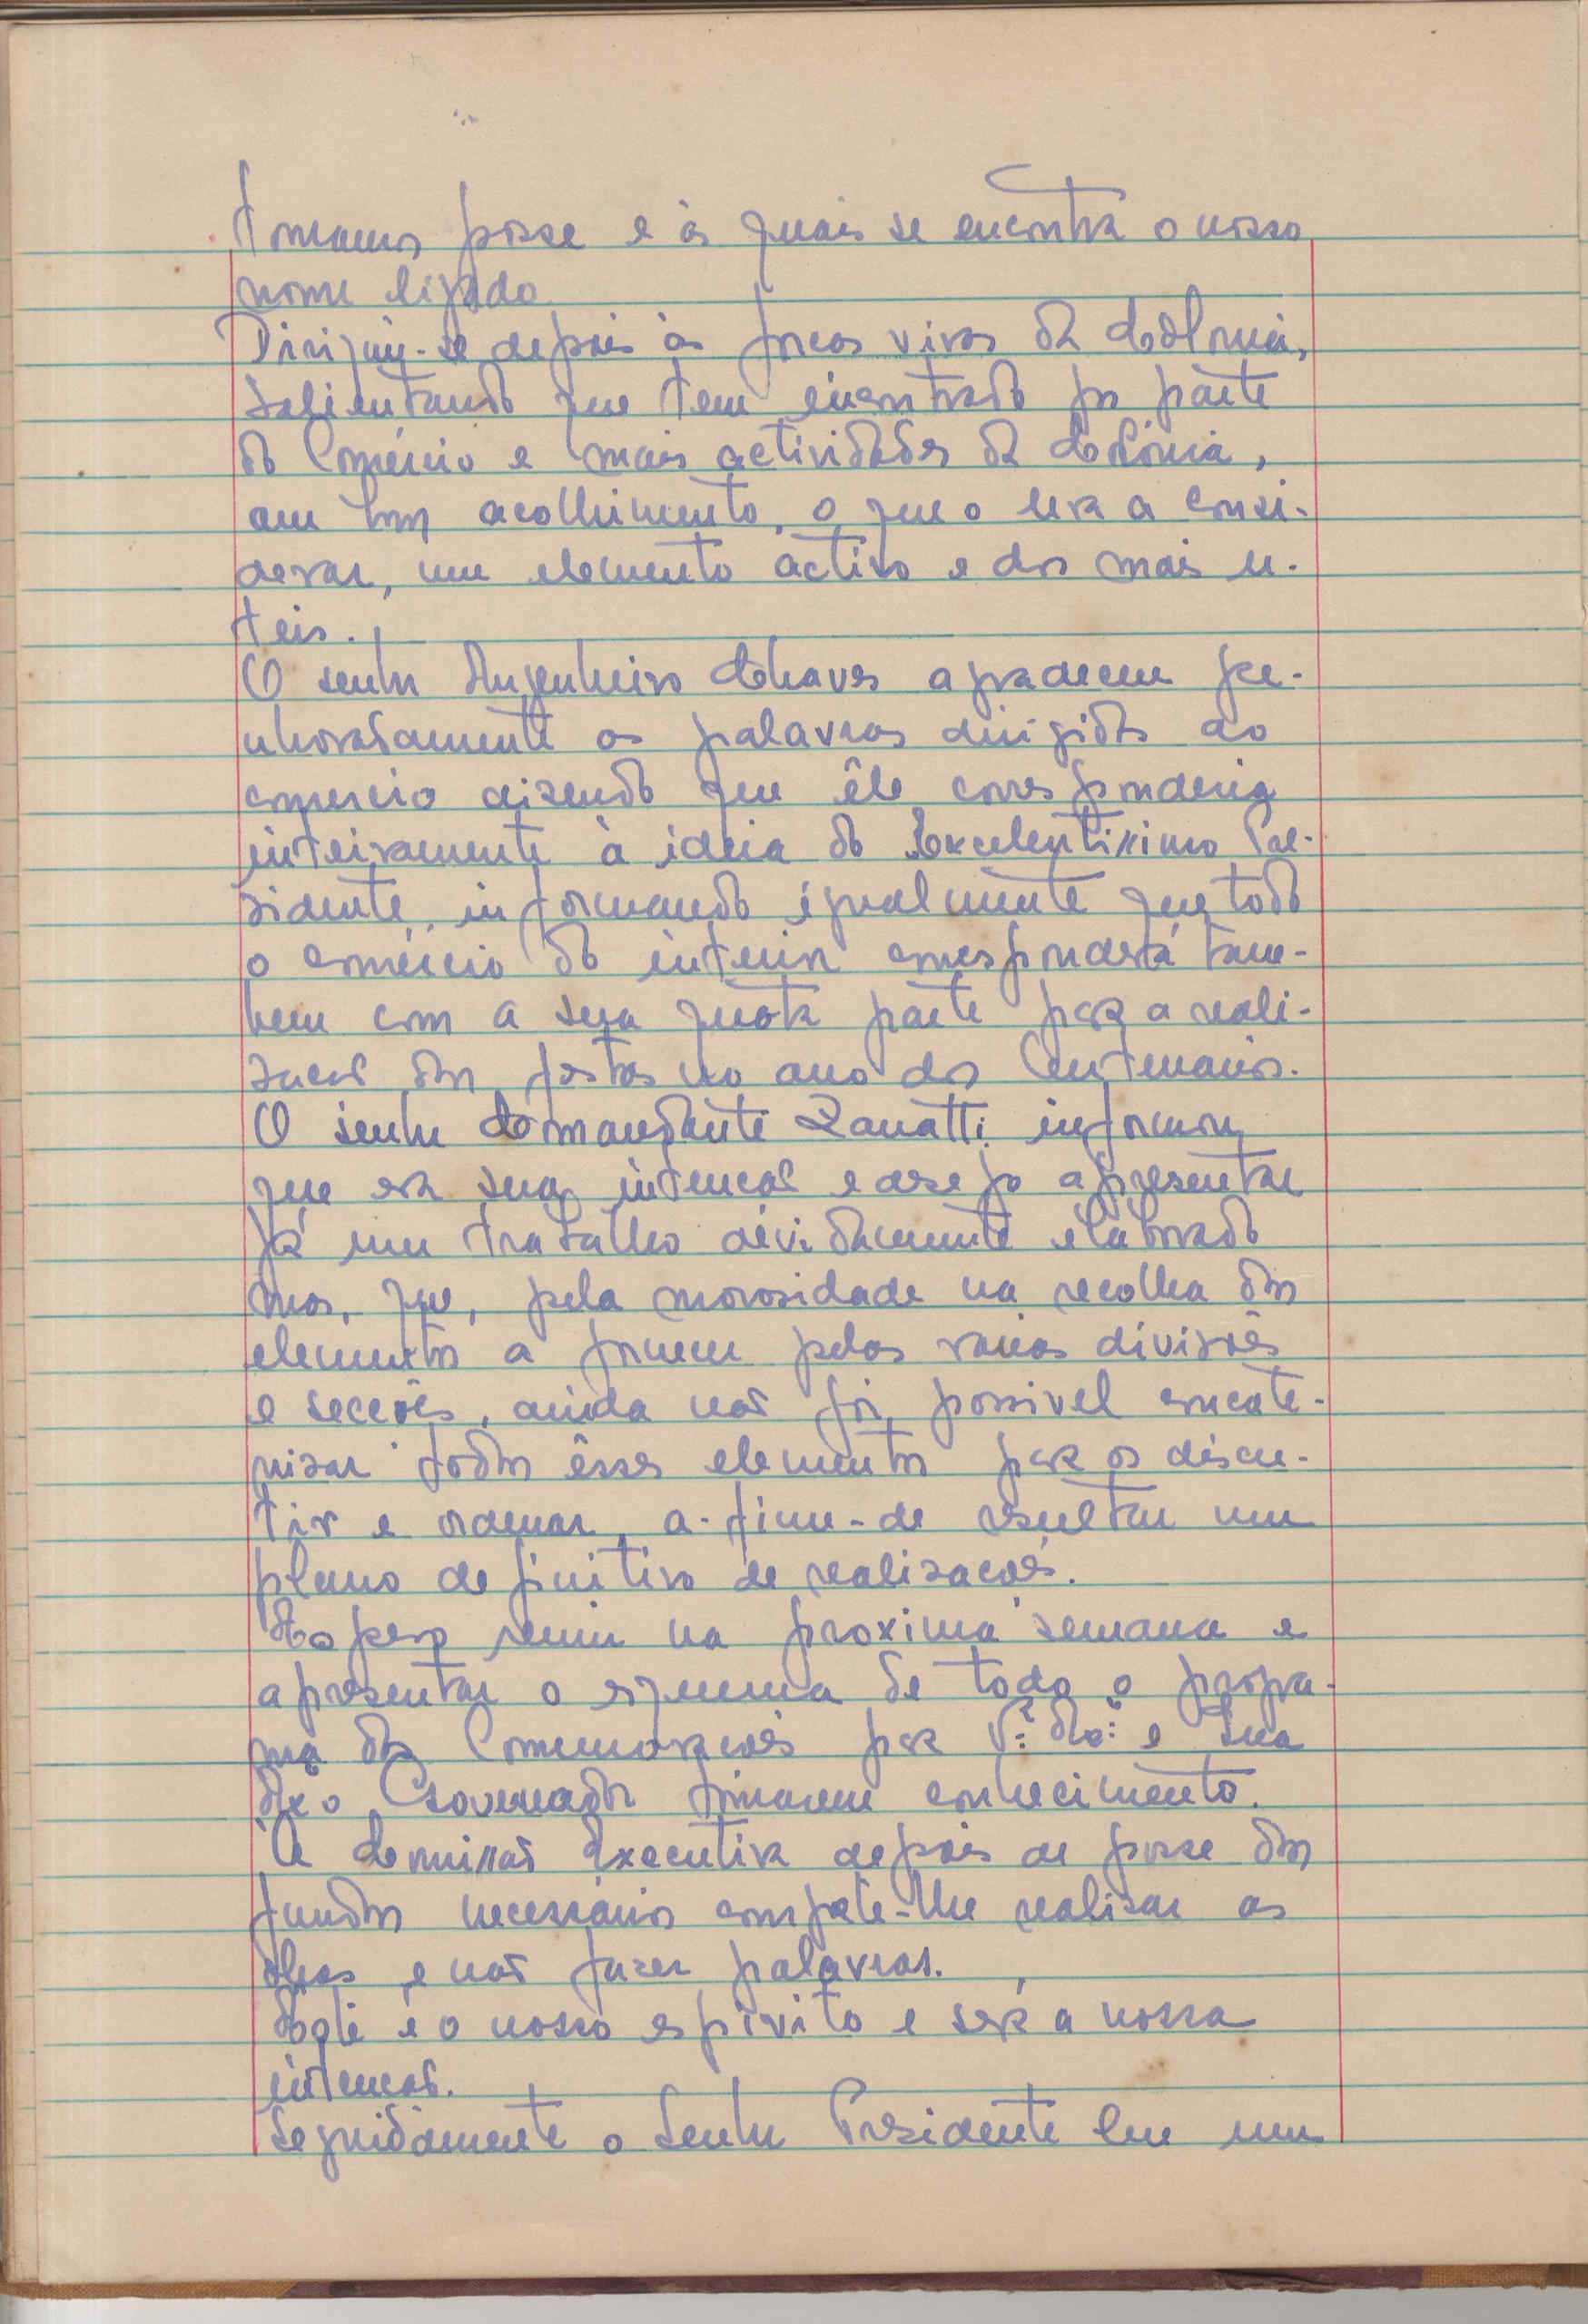 tomamos posse e às quais se encontra o nosso
nome ligado
Dirigiu-se depois às forcas vivas da Colonia,
salientando que tem encontrado por parte
do Comércio e mais actividades da Colónia,
um bom acolhimento, o que o leva a consi-
derar, um elemento activo e dos mais u-
teis.
O senhor Engenheiro Chaves agradeceu pe-
nhoradamente as palavras dirigidas ao
comercio dizendo que êle corresponderia
inteiramente à ideia do Excelentissimo Pre-
sidente, informando igualmente que todo
o comércio do interior corresponderá tam-
bem com a sua quota parte para a reali-
zacaõ das festas no ano dos Centenarios.
O senhor Comandante Zanatti informou
que era sua intencaõ e desejo apresentar
já um trabalho devidamente elaborado
mas, que, pela morosidade na recolha dos
elementos a fornecer pelas varias divisoês
e seccoês, ainda naõ foi possivel
todos êsses elementos para os discu-
tir e ordenar, a-fim-de resultar um
plano definitivo de realisacoês.
Espera reunir na proxima semana e
apresentar o esquema de todo o progra-
ma das Comemoracoês para V.ª Ex.ª e Sua
Ex.ª o Governador tomarem conhecimento.
A Comissaõ Executiva depois de posse dos
fundos necessarios compete-lhe realisar as
obras e naõ fazer palavras.
Este é o nosso espirito e será a nossa
intencaõ.
Seguidamente o Senhor Presidente leu um